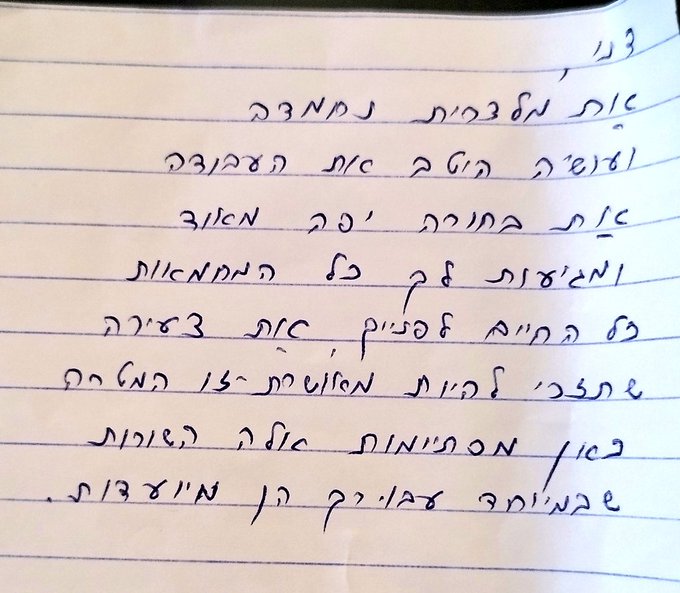 דני,
את מלצרית נחמדה
ועושה היטב את העבודה
את בחורה יפה מאוד
ומגיעות לך כל המחמאות
כל החיים לפנייך, את צעירה
שתזכי להיות מאושרת - זו המטרה
כאן מסתיימות אולה השורות
שבמיוחד עבורך הן מיועדות.